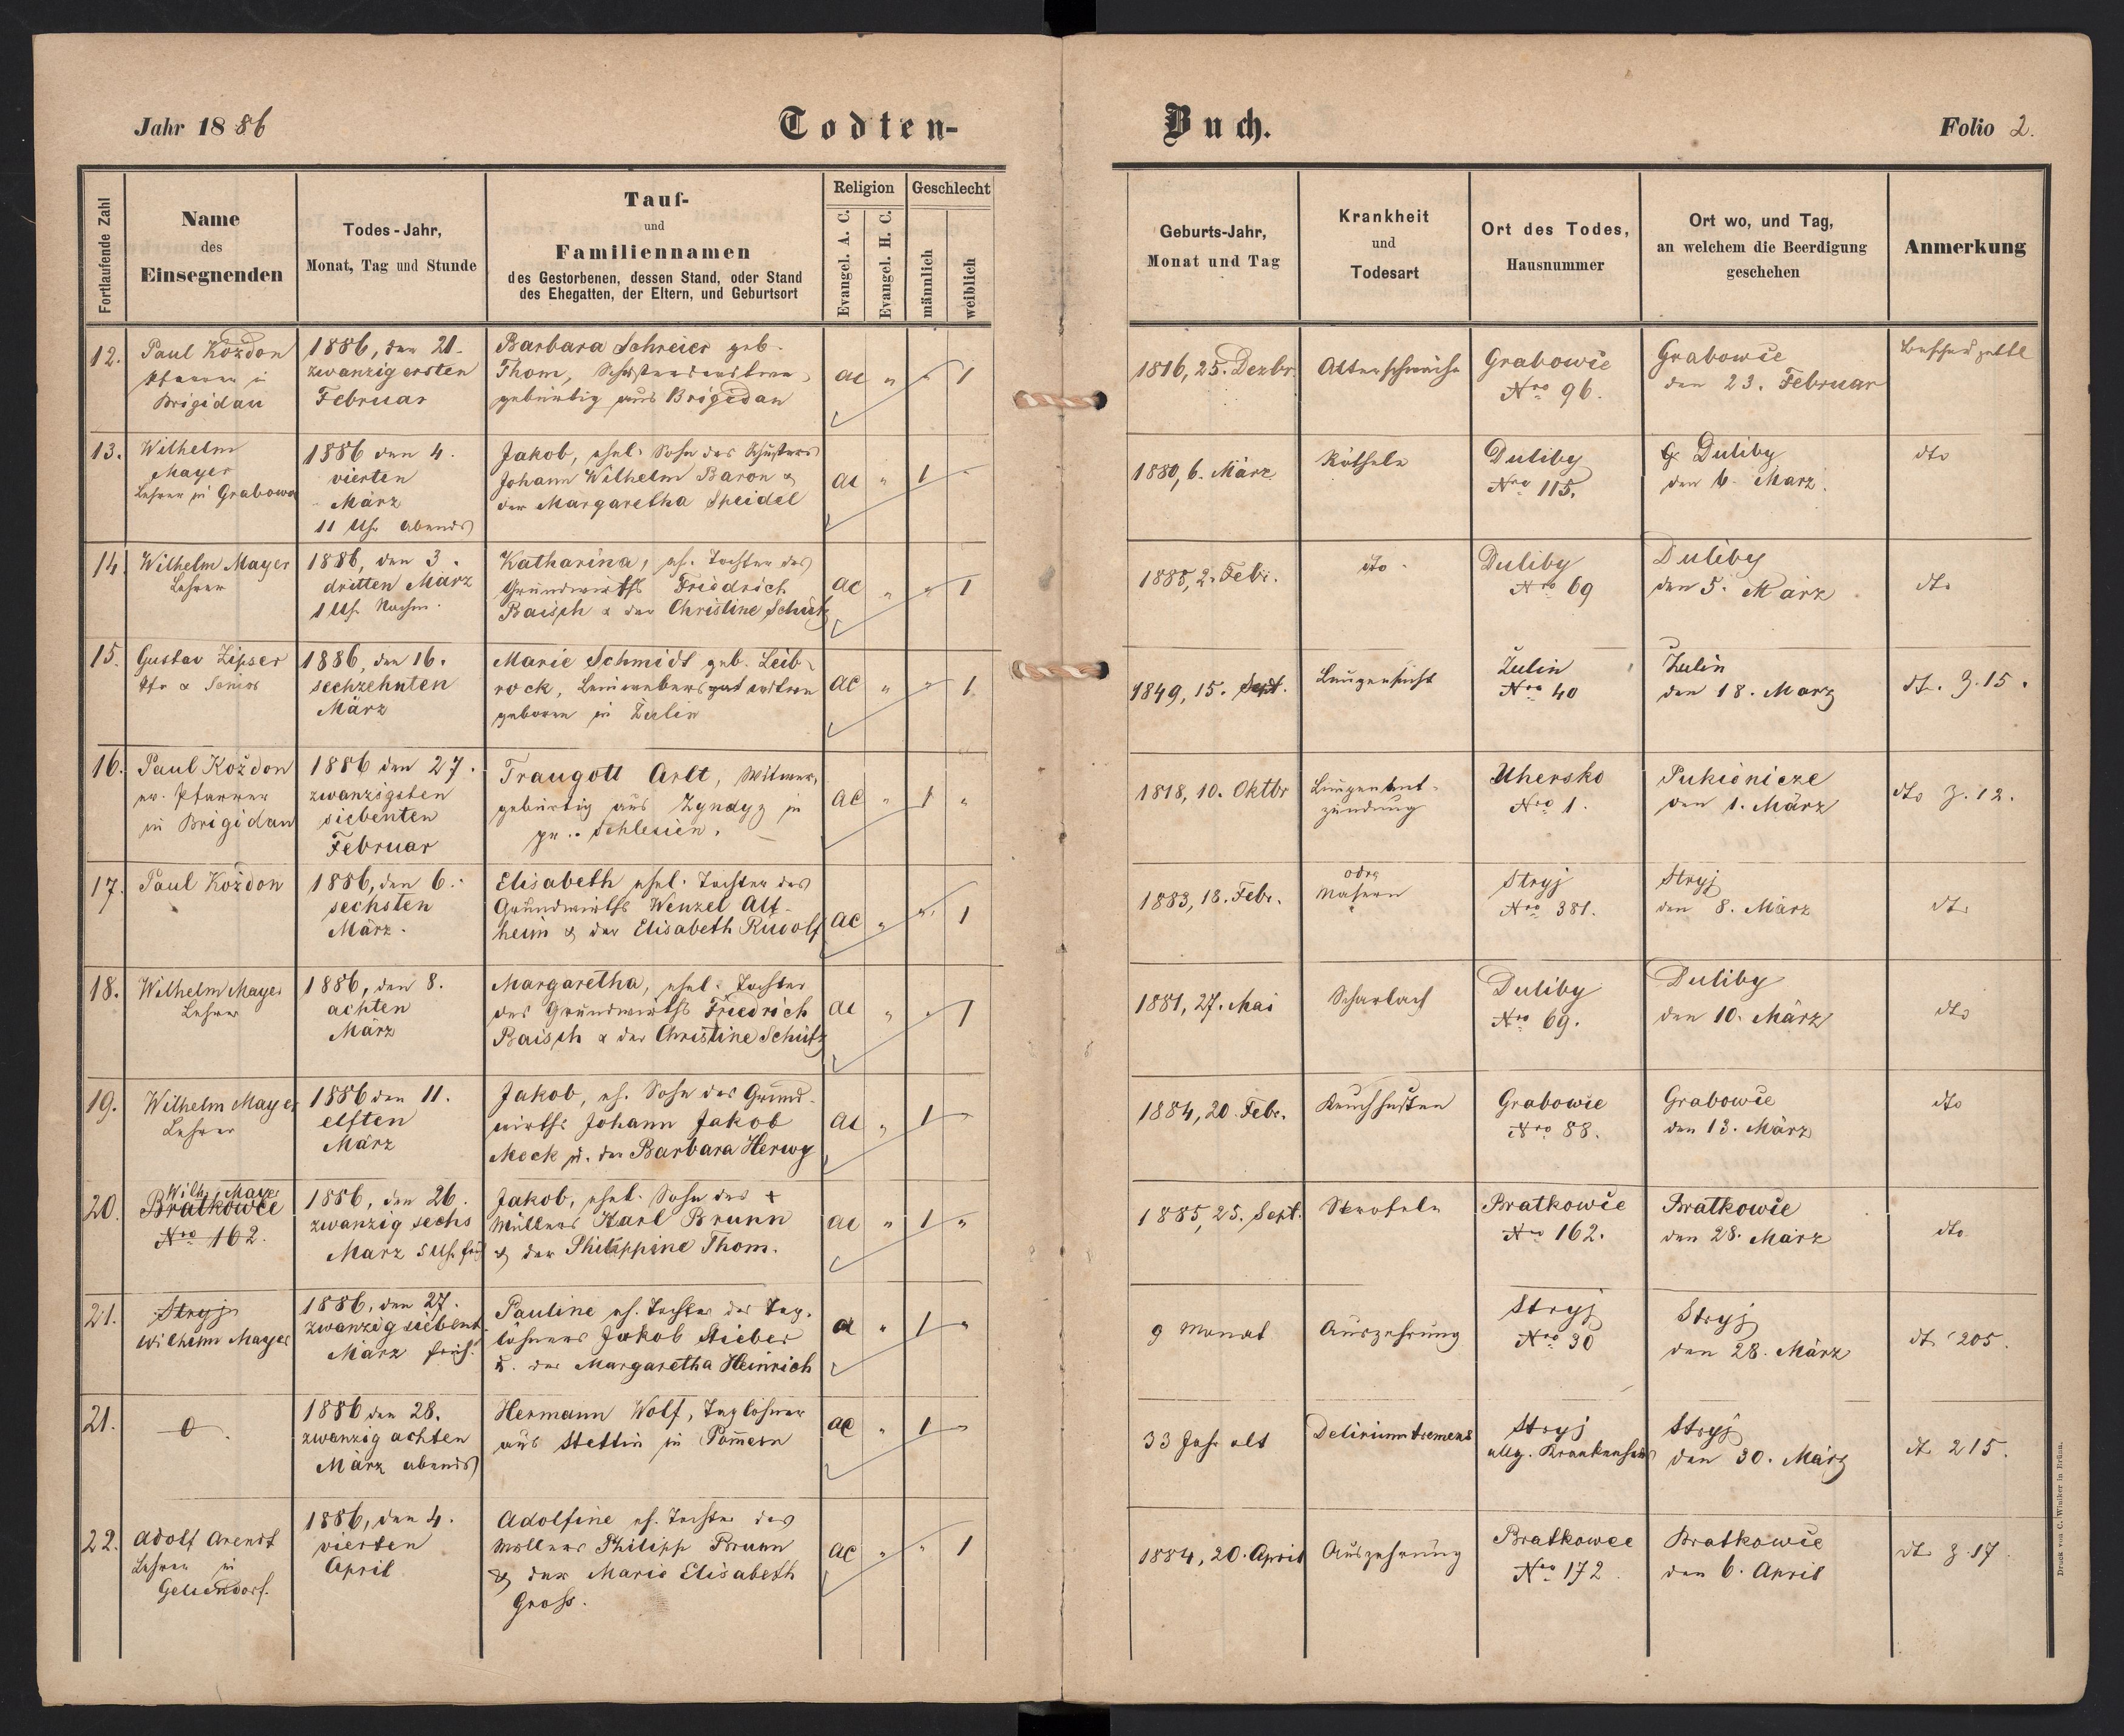 Jahr 1886
Todten-
Buch.
Folio 2.
Fortlaufende Zahl
Name
des
Einsegnenden
Todes-Jahr,
Monat, Tag und Stunde
Tauf-
und
Familiennamen
des Gestorbenen, dessen Stand, oder Stand
des Ehegatten, der Eltern, und Geburtsort
Religion
Evangel. A. C.
Evangel. H. C.
Geschlecht
männlich
weiblich
Geburts-Jahr,
Monat und Tag
Krankheit
und
Todesart
Ort des Todes,
Hausnummer
Ort wo, und Tag,
an welchem die Beerdigung
geschehen
Anmerkung
12.
Paul Koždon
Pfarrer in
Brigidau
1886, den 21.
zwanzigersten
Februar
Barbara Schreier geb.
Thom,
gebürtig aus Brigidau
ac " " 1
1816, 25. Dezbr.
Altersschwäche
Grabowce
Nro 96.
Grabowce
den 23. Februar
Beschauzettel
13.
Wilhelm
Mayer
Lehrer in Grabowce
1886 den 4.
vierten
März
11 Uhr abends
Jakob, ehel. Sohn des Schusters
Johann Wilhelm Baron &
der Margaretha Speidel
ac " 1 "
1880, 6. März
Rötheln
Duliby
Nro 115.
Duliby
den 6. März.
dto
14.
Wilhelm Mayer
Lehrer
1886, den 3.
dritten März
1 Uhr Nachm.
Katharina, eh. Tochter des
Grundwirths Friedrich
Baisch & der Christine Schütz
ac " " 1
1885, 2. Febr.
dto.
Duliby
Nro 69
Duliby
den 5. März
dto
15.
Gustav Zipser
Pfr & Senior
1886, den 16.
sechzehnten
März
Marie Schmidt geb. Leib-
rock, Leinwebersgattin
geboren in Zulin
ac " " 1
1849, 15. Sept.
Lungensucht
Zulin
Nro 40
Zulin
den 18. März
dto. Z. 15.
16.
Paul Koždon
ev. Pfarrer
in Brigidau
1886 den 27.
zwanzigsten
siebenten
Februar
Traugott Arlt, Witwer,
gebürtig aus in
pr. Schlesien.
ac " 1 "
1818, 10. Oktbr
Lungenent-
zündung
Uhersko
Nro 1.
Pukienicze
den 1. März
dto Z. 12.
17.
Paul Koždon
1886, den 6.
sechsten
März.
Elisabeth ehel. Tochter des
Grundwirths Wenzel Alt-
heim & der Elisabeth Rudolf
ac " " 1
1883, 18. Febr.
Masern
Stryj
Nro 381.
Stryj
den 8. März
dto
18.
Wilhelm Mayer
Lehrer
1886, den 8.
achten
März
Margaretha, ehel. Tochter
des Grundwirths Friedrich
Baisch & der Christine Schütz
ac " " 1
1881, 27. Mai
Scharlach
Duliby
Nro 69.
Duliby
den 10. März
dto
19.
Wilhelm Mayer
Lehrer
1886 den 11.
elften
März
Jakob, eh. Sohn des Grund-
wirths Johann Jakob
Meck u. der Barbara Herwy
ac " 1 "
1884, 20. Febr.
Keuchhusten
Grabowce
Nro 88.
Grabowce
den 13. März
dto
20.
Wilh. Mayer
Bratkowce
Nro 162.
1886, den 26.
zwanzig sechs
März 5 Uhr früh
Jakob, ehel. Sohn des +
Müllers Karl Brunn
& der Philippine Thom.
ac " 1 "
1885, 25. Sept.
Skrofeln
Bratkowce
Nro 162.
Bratkowce
den 28. März
dto
21.
Stryj
Wilhelm Mayer
1886, den 27.
zwanzig siebent
März früh.
Pauline eh. Tochter des Tag-
löhners Jakob Stieber
u. der Margaretha Heinrich
a " 1 "
9 Monat
Auszehrung
Stryj
Nro 30
Stryj
den 28. März
dto 205.
21.
0
1886 den 28.
zwanzig achten
März abends
Hermann Wolf, Taglöhner
aus Stettin in Pommern
ac " 1 "
33 Jahr alt
Delirium tremens
Stryj
allg. Krankenhaus
Stryj
den 30. März
dto 215.
22.
Adolf Arendt
Lehrer in
Gelsendorf.
1886, den 4.
vierten
April
Adolfine eh. Tochter des
Müllers Philipp Brunn
& der Marie Elisabeth
Groß.
ac " " 1
1884, 20. April
Auszehrung
Bratkowce
Nro 172.
Bratkowce
den 6. April
dto Z. 17
Druck von C. Winiker in Brünn.